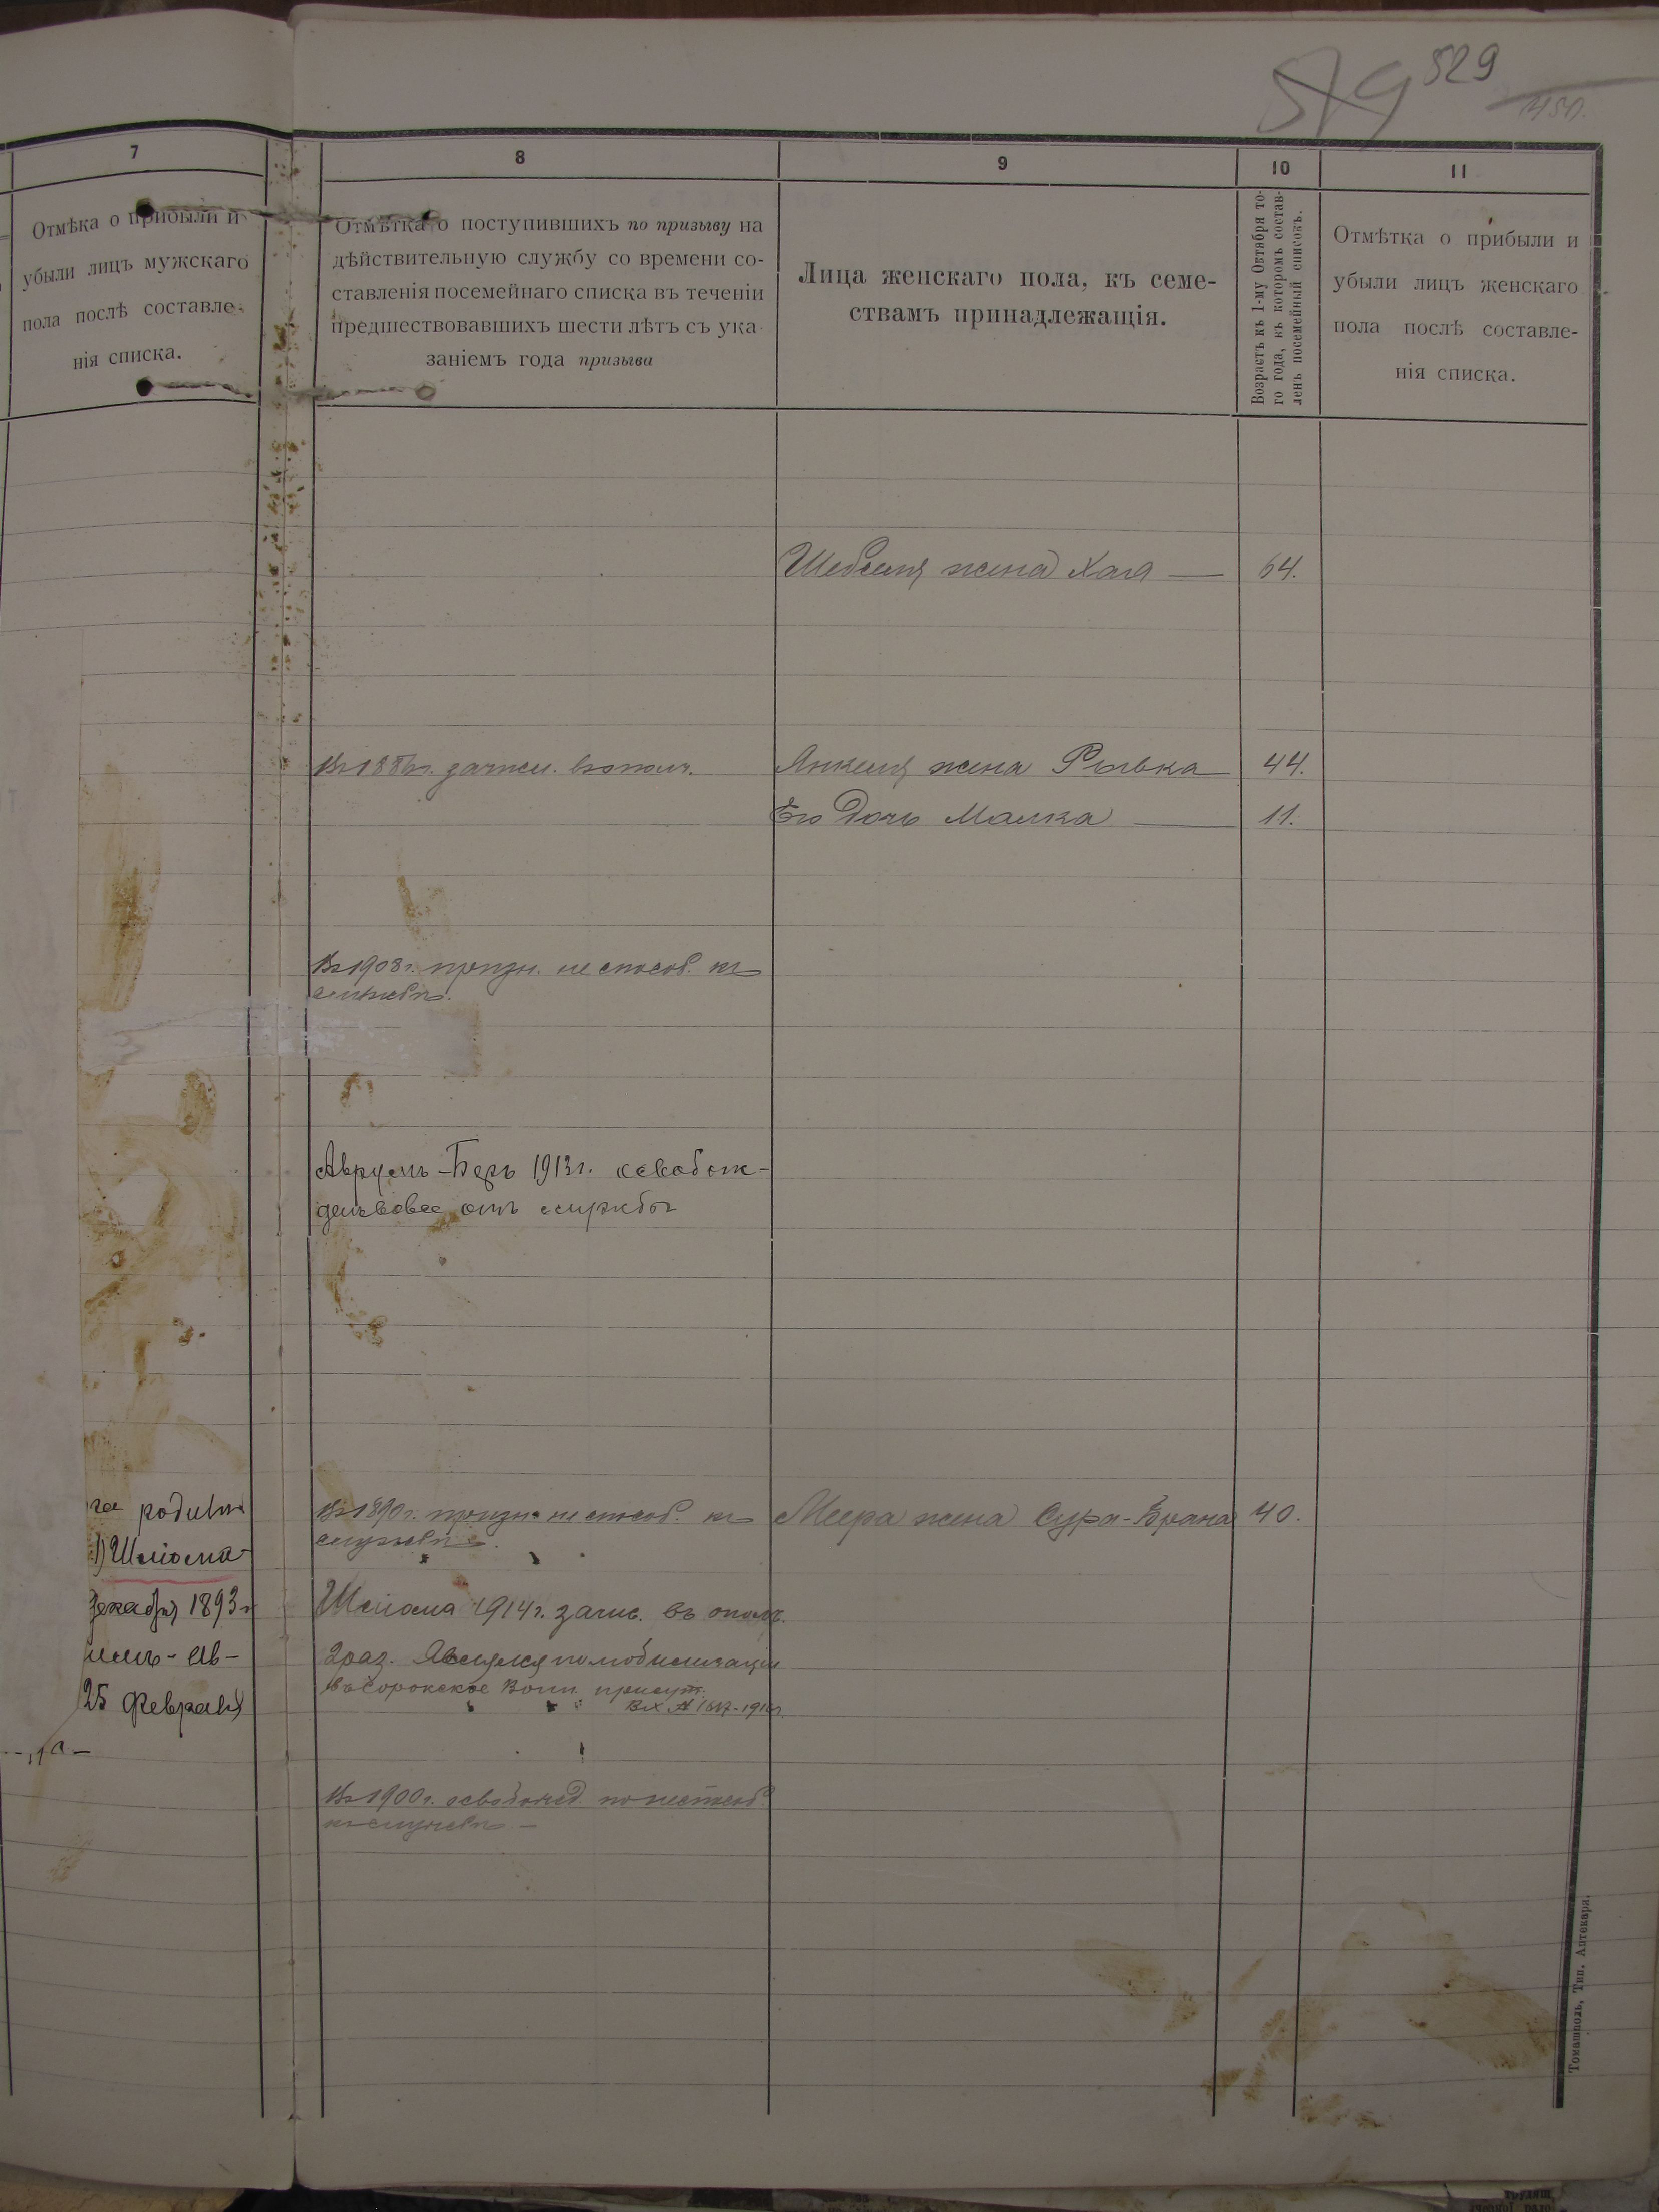 529
450.
7
8
9
10
11
Отмѣка о прибыли и
убыли лицъ мужскаго
пола послѣ составле-
нія списка.
Отмѣтка о поступившихъ по призыву на
дѣйствительную службу со времени со-
ставленія посемейнаго списка въ теченіи
предшествовавшихъ шести лѣтъ съ ука
заніемъ года призыва
Лица женскаго пола, къ семе-
ствамъ принадлежащія.
Возрастъ къ 1-му Октября то-
го года, къ которомъ состав-
ленъ посемейный списокъ.
Отмѣтка о прибыли и
убыли лицъ женскаго
пола послѣ составле-
нія списка.
жена Хая — 64.
Въ 1886 г. зачисл. в ополч.
Янкеля жена Рывка 44.
Его Дочь Малка — 11.
Въ 1908 г. призн. не способ. къ
службѣ.
Аврумъ-Беръ 1913 г. освобож-
отъ службы
родились
1) Шліома
Декабря 1893 г
25 Февраля
Въ 1890 г. призн. не способ. къ
службѣ.
Меера жена Сура-Брана 40.
Шліома 1914 г. зачис. въ ополч.
2 раз. Явился по мобилизаціи
въ Сорокское Воин. присут.
Въ 1900 г. освобожд. по неспособ.
къ службѣ —
Томашполь, Тип. Аптекаря.